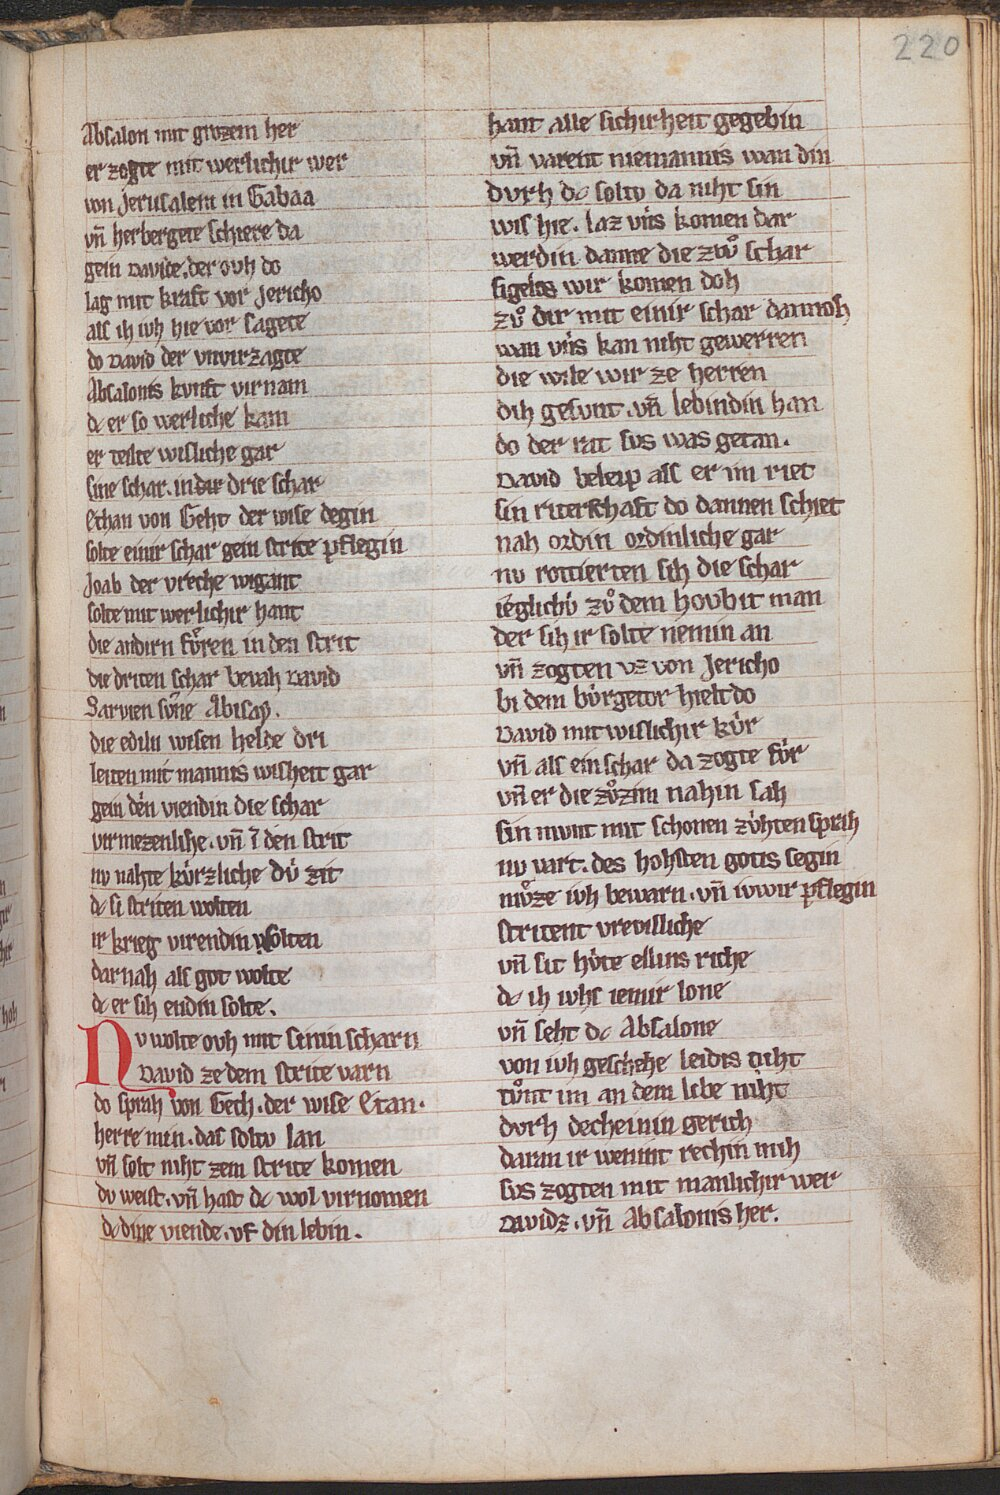 220
Absalon mit grozem her
er zogte mit werlichir wer
von Jerusalem in Gabaa
vn̄ herbergete schiere da
gein Davide, der ovh do
lag mit kraft vor Jericho
als ih iwh hie vor sagete
do David der vnvirzagte
Absalonis kvnft virnam
dc er so werliche kam
er teilte wisliche gar
sine schar. in dir drie schar
Ethan von Geht der wise degin
solte einir schar gein strite pflegin
Joab der vreche wigant
solte mit werlichir hant
die andirn fu̍ren in den strit
die driten schar bevah David
Sarvien svͦne Abisay.
die ediln wisen helde dri
leiten mit mannis wisheit gar
gein den viendin die schar
virmezenlihe. vn̄ ī den strit
nv nahte kv̍rzliche dv̍ zit
dc si striten wolten
ir krieg virendin solten
darnah als got wolte
dc er sih endin solte.
Nv wolte ovh mit sinin scharn
David ze dem strite varn
do sprah von Gech. der wise Etan.
herre min. das soltv lan
vn̄ solt niht zem strite komen
dv weist. vn̄ hast dc wol virnomen
dc dine viende. vf din lebin.
hant alle sichirheit gegebin
vn̄ varent niemannis wan din
dvrh dc soltv da niht sin
wis hie. laz vns komen dar
werdin danne die zwoͮ schar
sigelos wir komen doh
zvͦ dir mit einir schar dannoh
wan vns kan niht gewerren
die wile wir ze herren
dih gesunt. vn̄ lebindin han
do der rat svs was getan.
David beleip als er im riet
sin riterschaft do dannen schiet
nah ordin ordinliche gar
nv rottierten sih die schar
ieglichv̍ zvͦ dem hovbit man
der sih ir solte nemin an
vn̄ zogten vz von Jericho
bi dem bv̍rgetor hielt do
David mit wislichir kv̍r
vn̄ als ein schar da zogte fv̍r
vn̄ er die zvͦzim nahin sah
sin mvnt mit schonen zv̍hten sprah
nv vart. des hohsten gotis segin
mvͦze iwh bewarn. vn̄ iwir pflegin
stritent vrevilliche
vn̄ sit hv̍te ellins riche
dc ih iwhs iemir lone
vn̄ seht dc Absalone
von iwh geschehe leidis niht
tvͦnt im an dem libe niht
dvrh decheinin gerich
daran ir wenint rechin mih
svs zogten mit manlichir wer
Davidz. vn̄ Absalonis her.